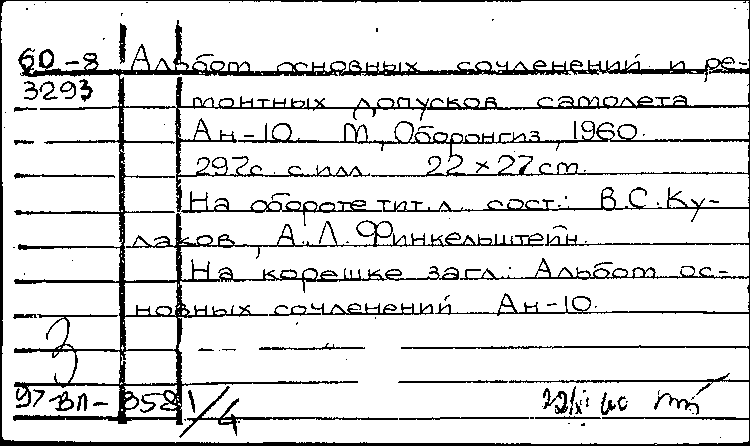 60-8 Альбом основных сочленений и ре-
3293 монтных допусков самолета
Ан-10. М., Оборонгиз, 1960.
297с. с илл. 22×27cm.
На обороте тит.л. сост.: В.С.Ку-
лаков, А.Л.Финкельштейн.
На корешке загл.: Альбом ос-
новных сочленений Ан-10.
3
97-ВЛ-858 1/4